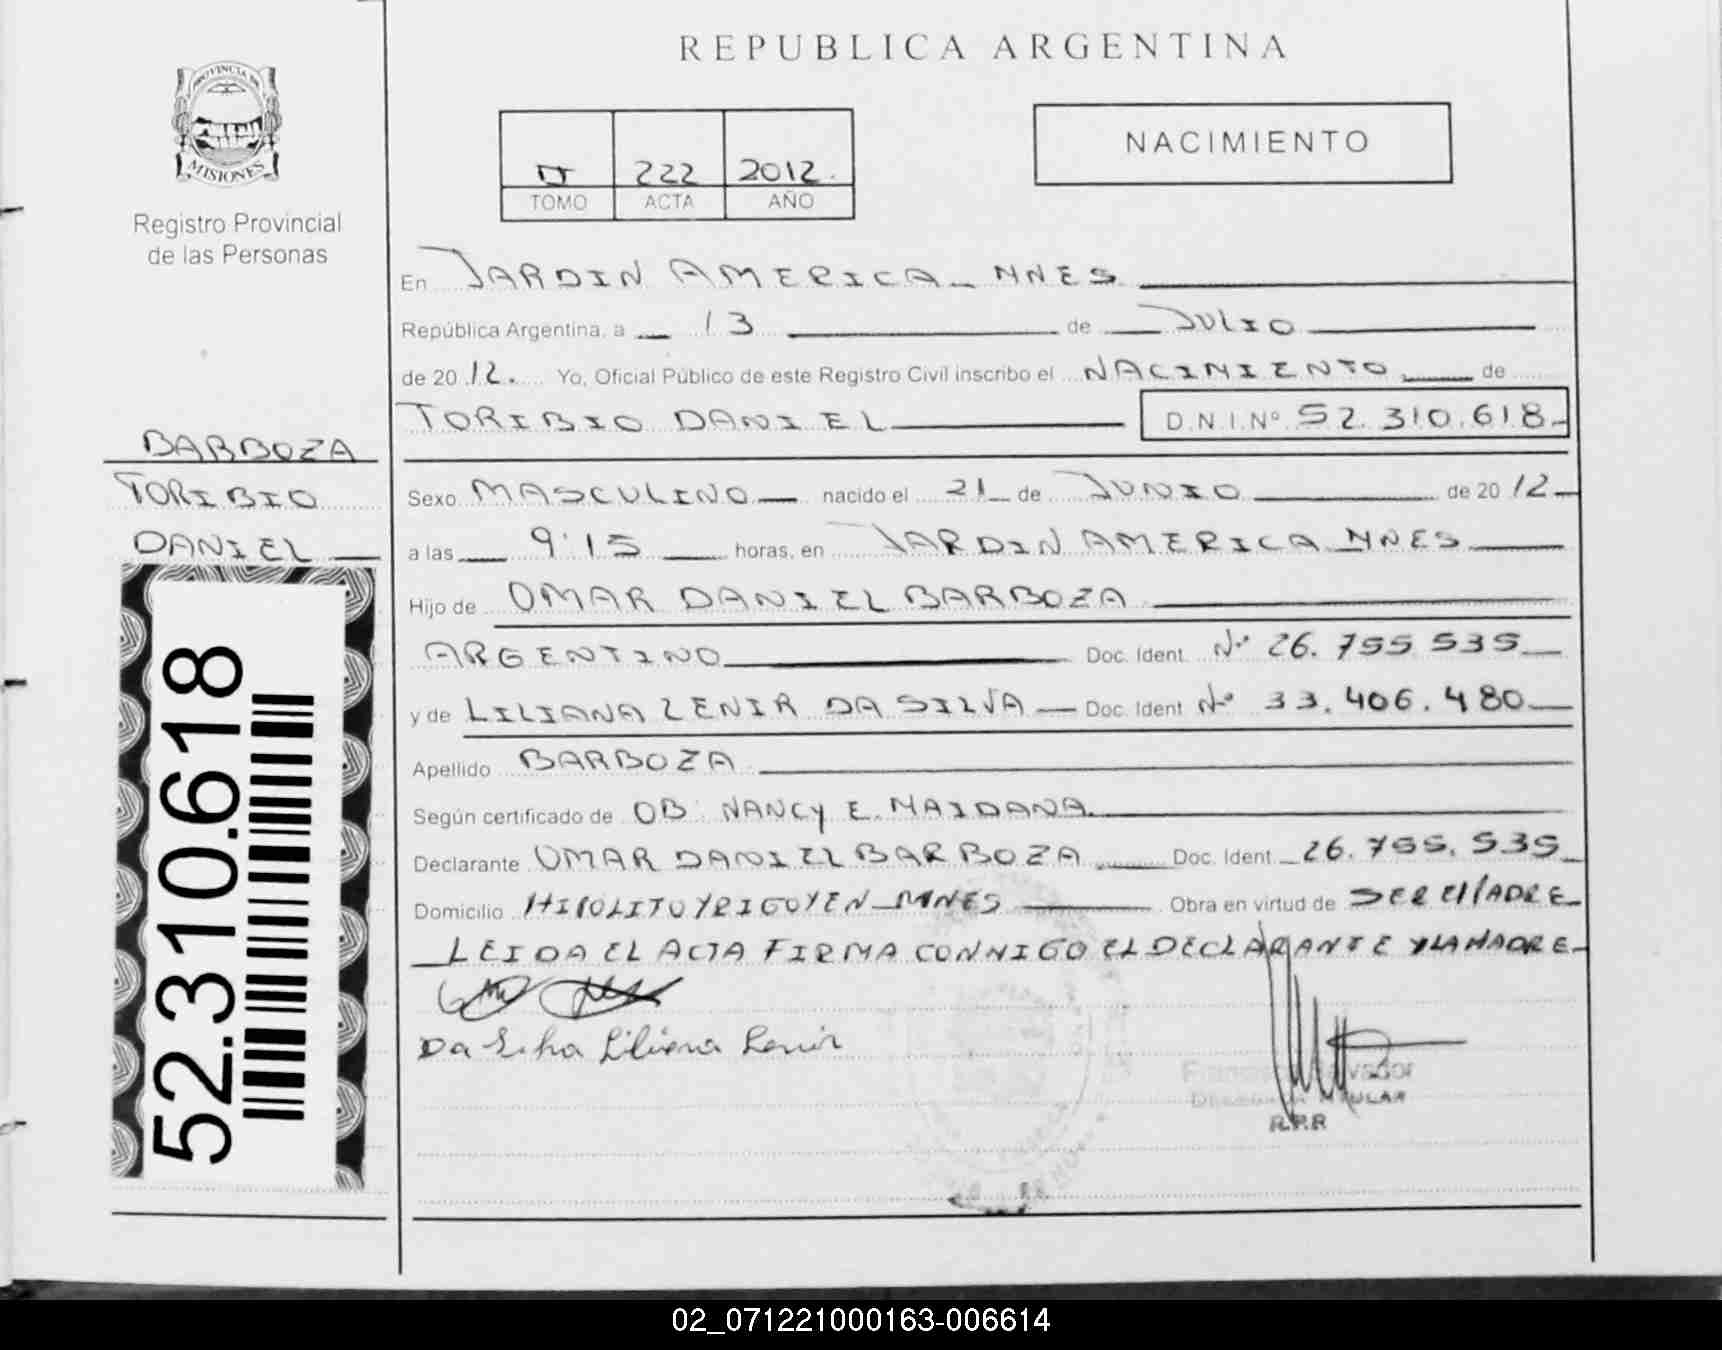 REPUBLICA ARGENTINA
PROVINCIA DE
MISIONES
Registro Provincial
de las Personas
II 222 2012.
TOMO ACTA AÑO
NACIMIENTO
En JARDIN AMERICA_ MNES
República Argentina, a 13 de JULIO
de 2012. Yo, Oficial Público de este Registro Civil inscribo el NACIMIENTO de
TORIBIO DANIEL D.N.I.Nº 52.310.618-
BARBOZA
TORIBIO
DANIEL
52.310.618
Sexo MASCULINO nacido el 21 de JUNIO de 2012
a las 9:15 horas, en JARDIN AMERICA MNES
Hijo de OMAR DANIEL BARBOZA
ARGENTINO Doc. Ident. Nº 26.755.535
y de LILIANA ZENIR DA SILVA Doc. Ident. Nº 33.406.480
Apellido BARBOZA
Según certificado de OB: NANCY E. MAIDANA.
Declarante OMAR DANIEL BARBOZA Doc. Ident. 26.755.535
Domicilio HIPOLITO YRIGOYEN - MNES Obra en virtud de SER EL PADRE
LEIDA EL ACTA FIRMA CONMIGO EL DECLARANTE Y LA MADRE
Da Silva Liliana Zenir
R.P.P
02_071221000163-006614